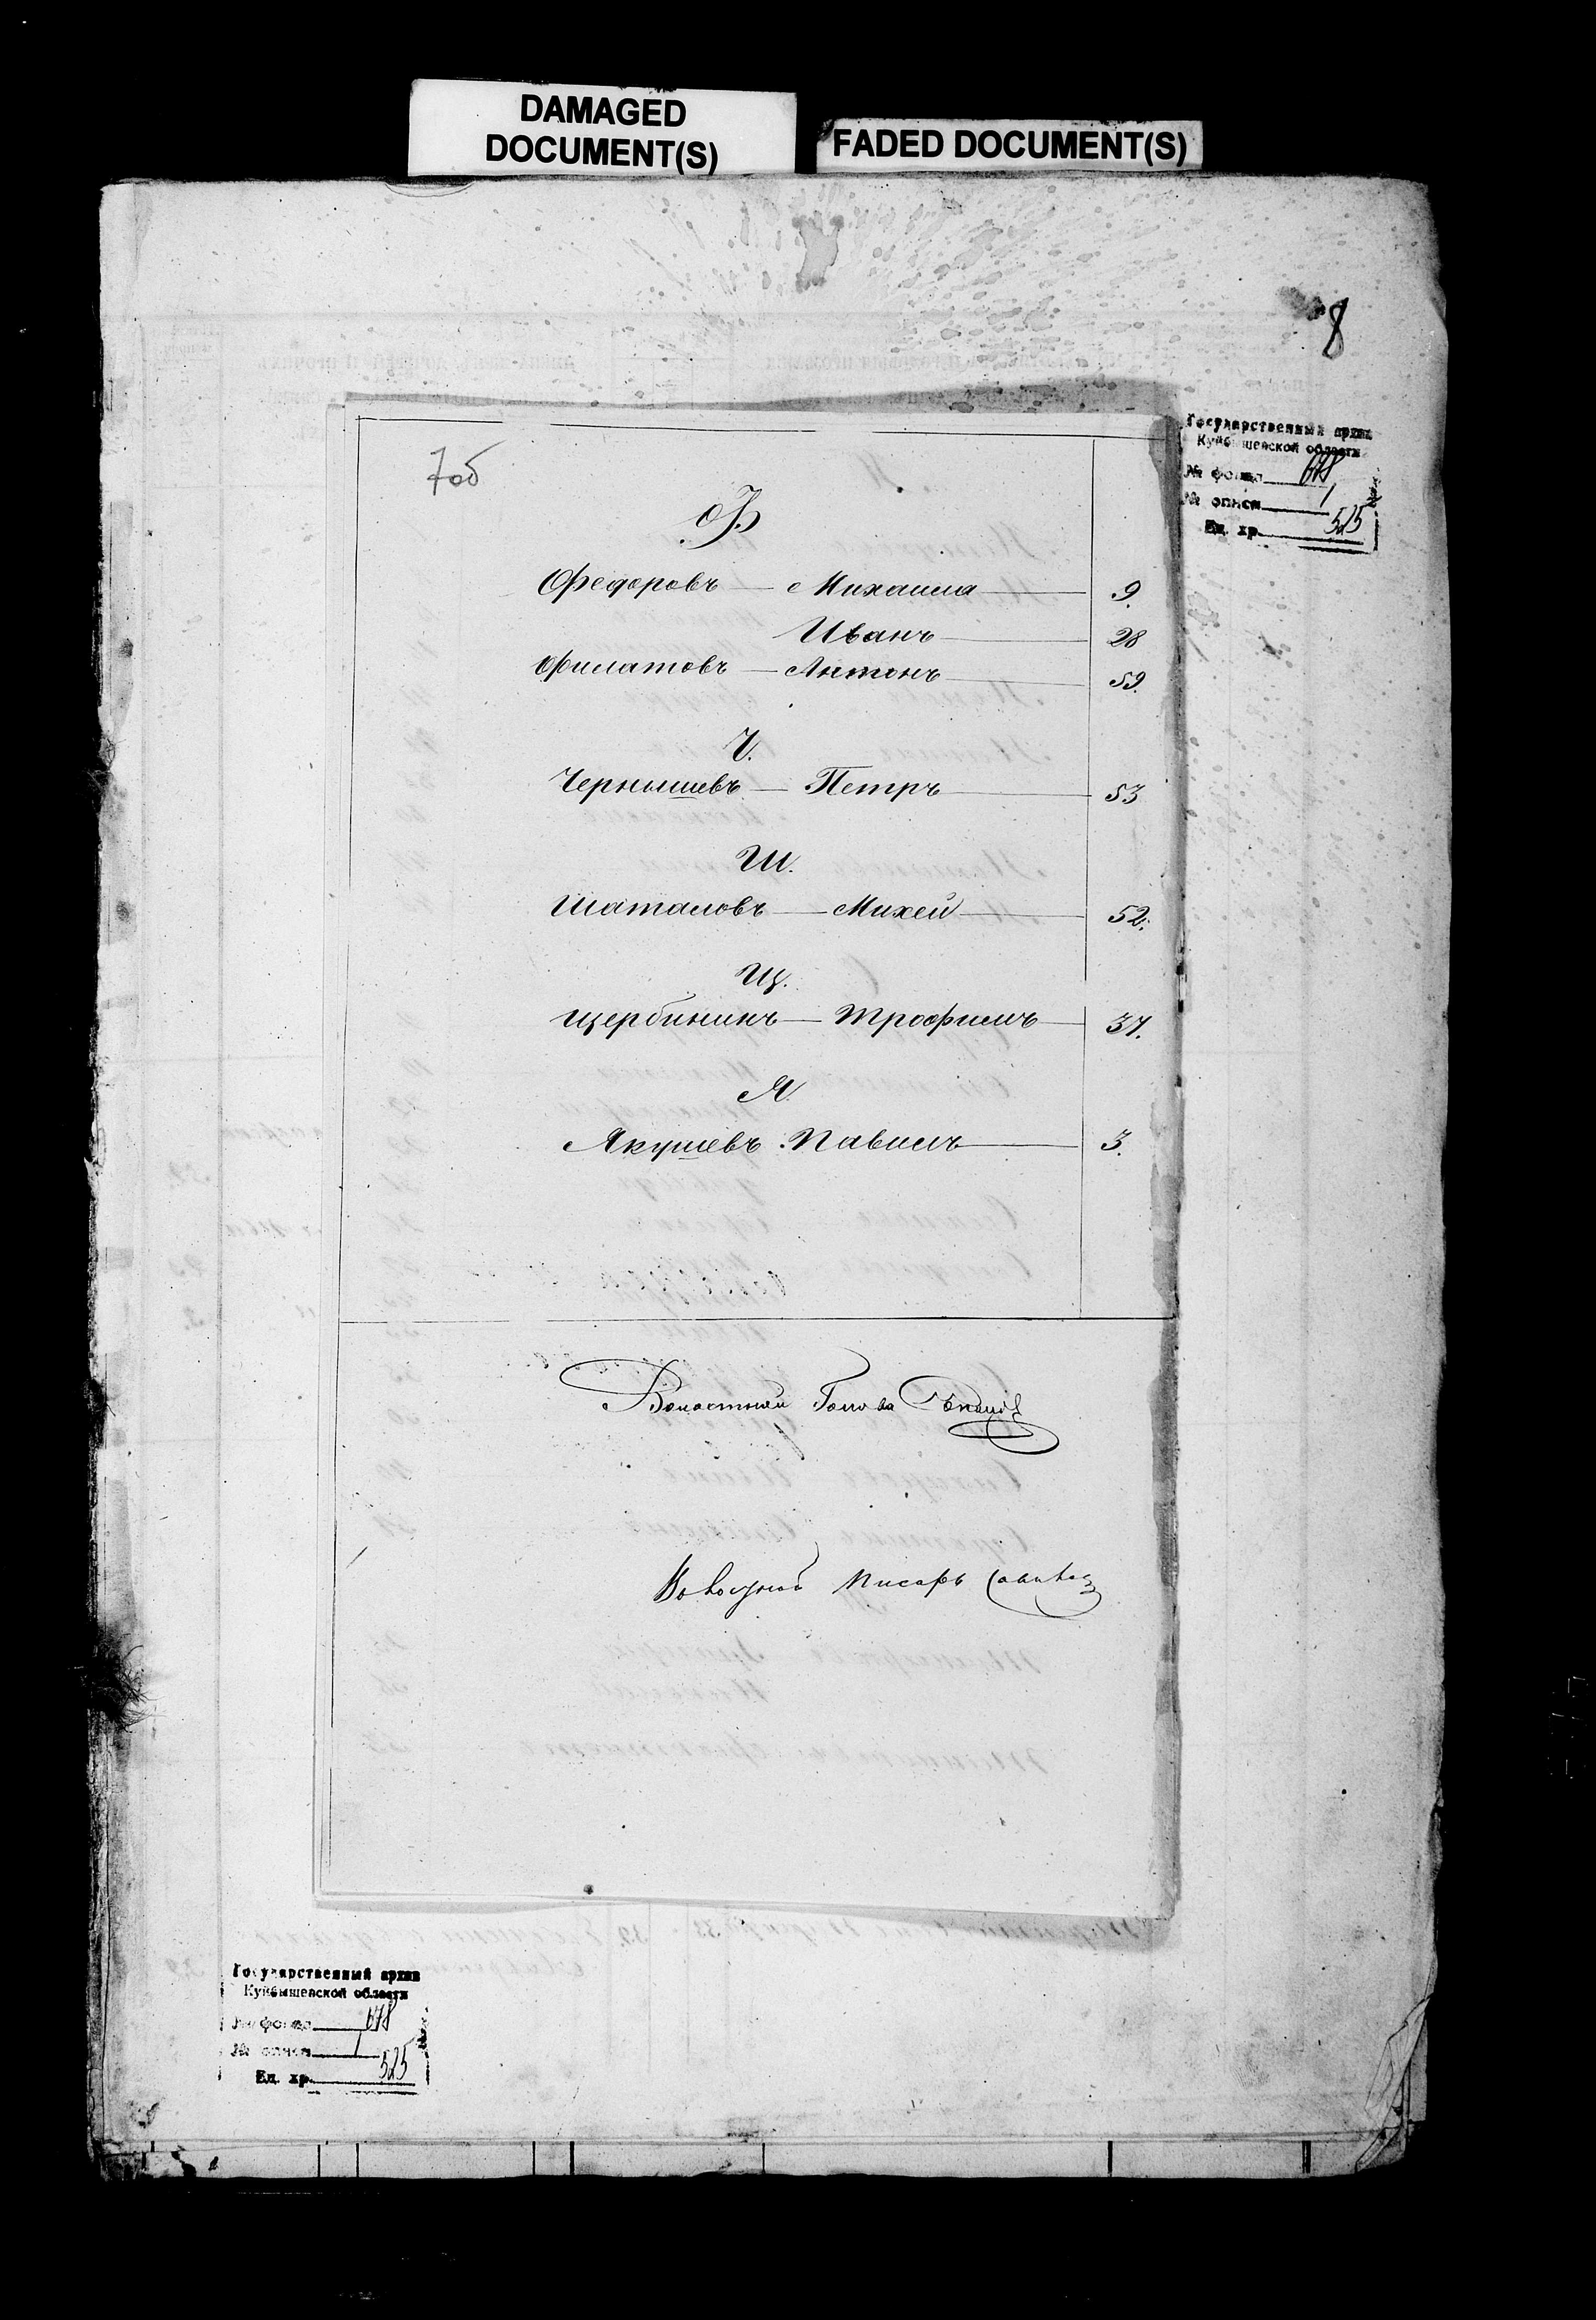 DAMAGED
DOCUMENT(S)
FADED DOCUMENT(S)
8
Государственный архив
Куйбышевской области
№ фонда 678
№ описи 1
Ед. хр. 525
7об
Ф.
Федоровъ — Михаила — 9.
Иванъ — 28
Филатовъ — Антонъ — 59.
Ч.
Чернышевъ — Петръ — 53
Ш.
Шаталовъ — Михей — 52.
Щ.
Щербининъ — Трофимъ — 37.
Я.
Якушевъ Павилъ — 3.
Волостный Голова
Писарь
Государственный архив
Куйбышевской области
№ фонда 678
№ описи 1
Ед. хр. 525